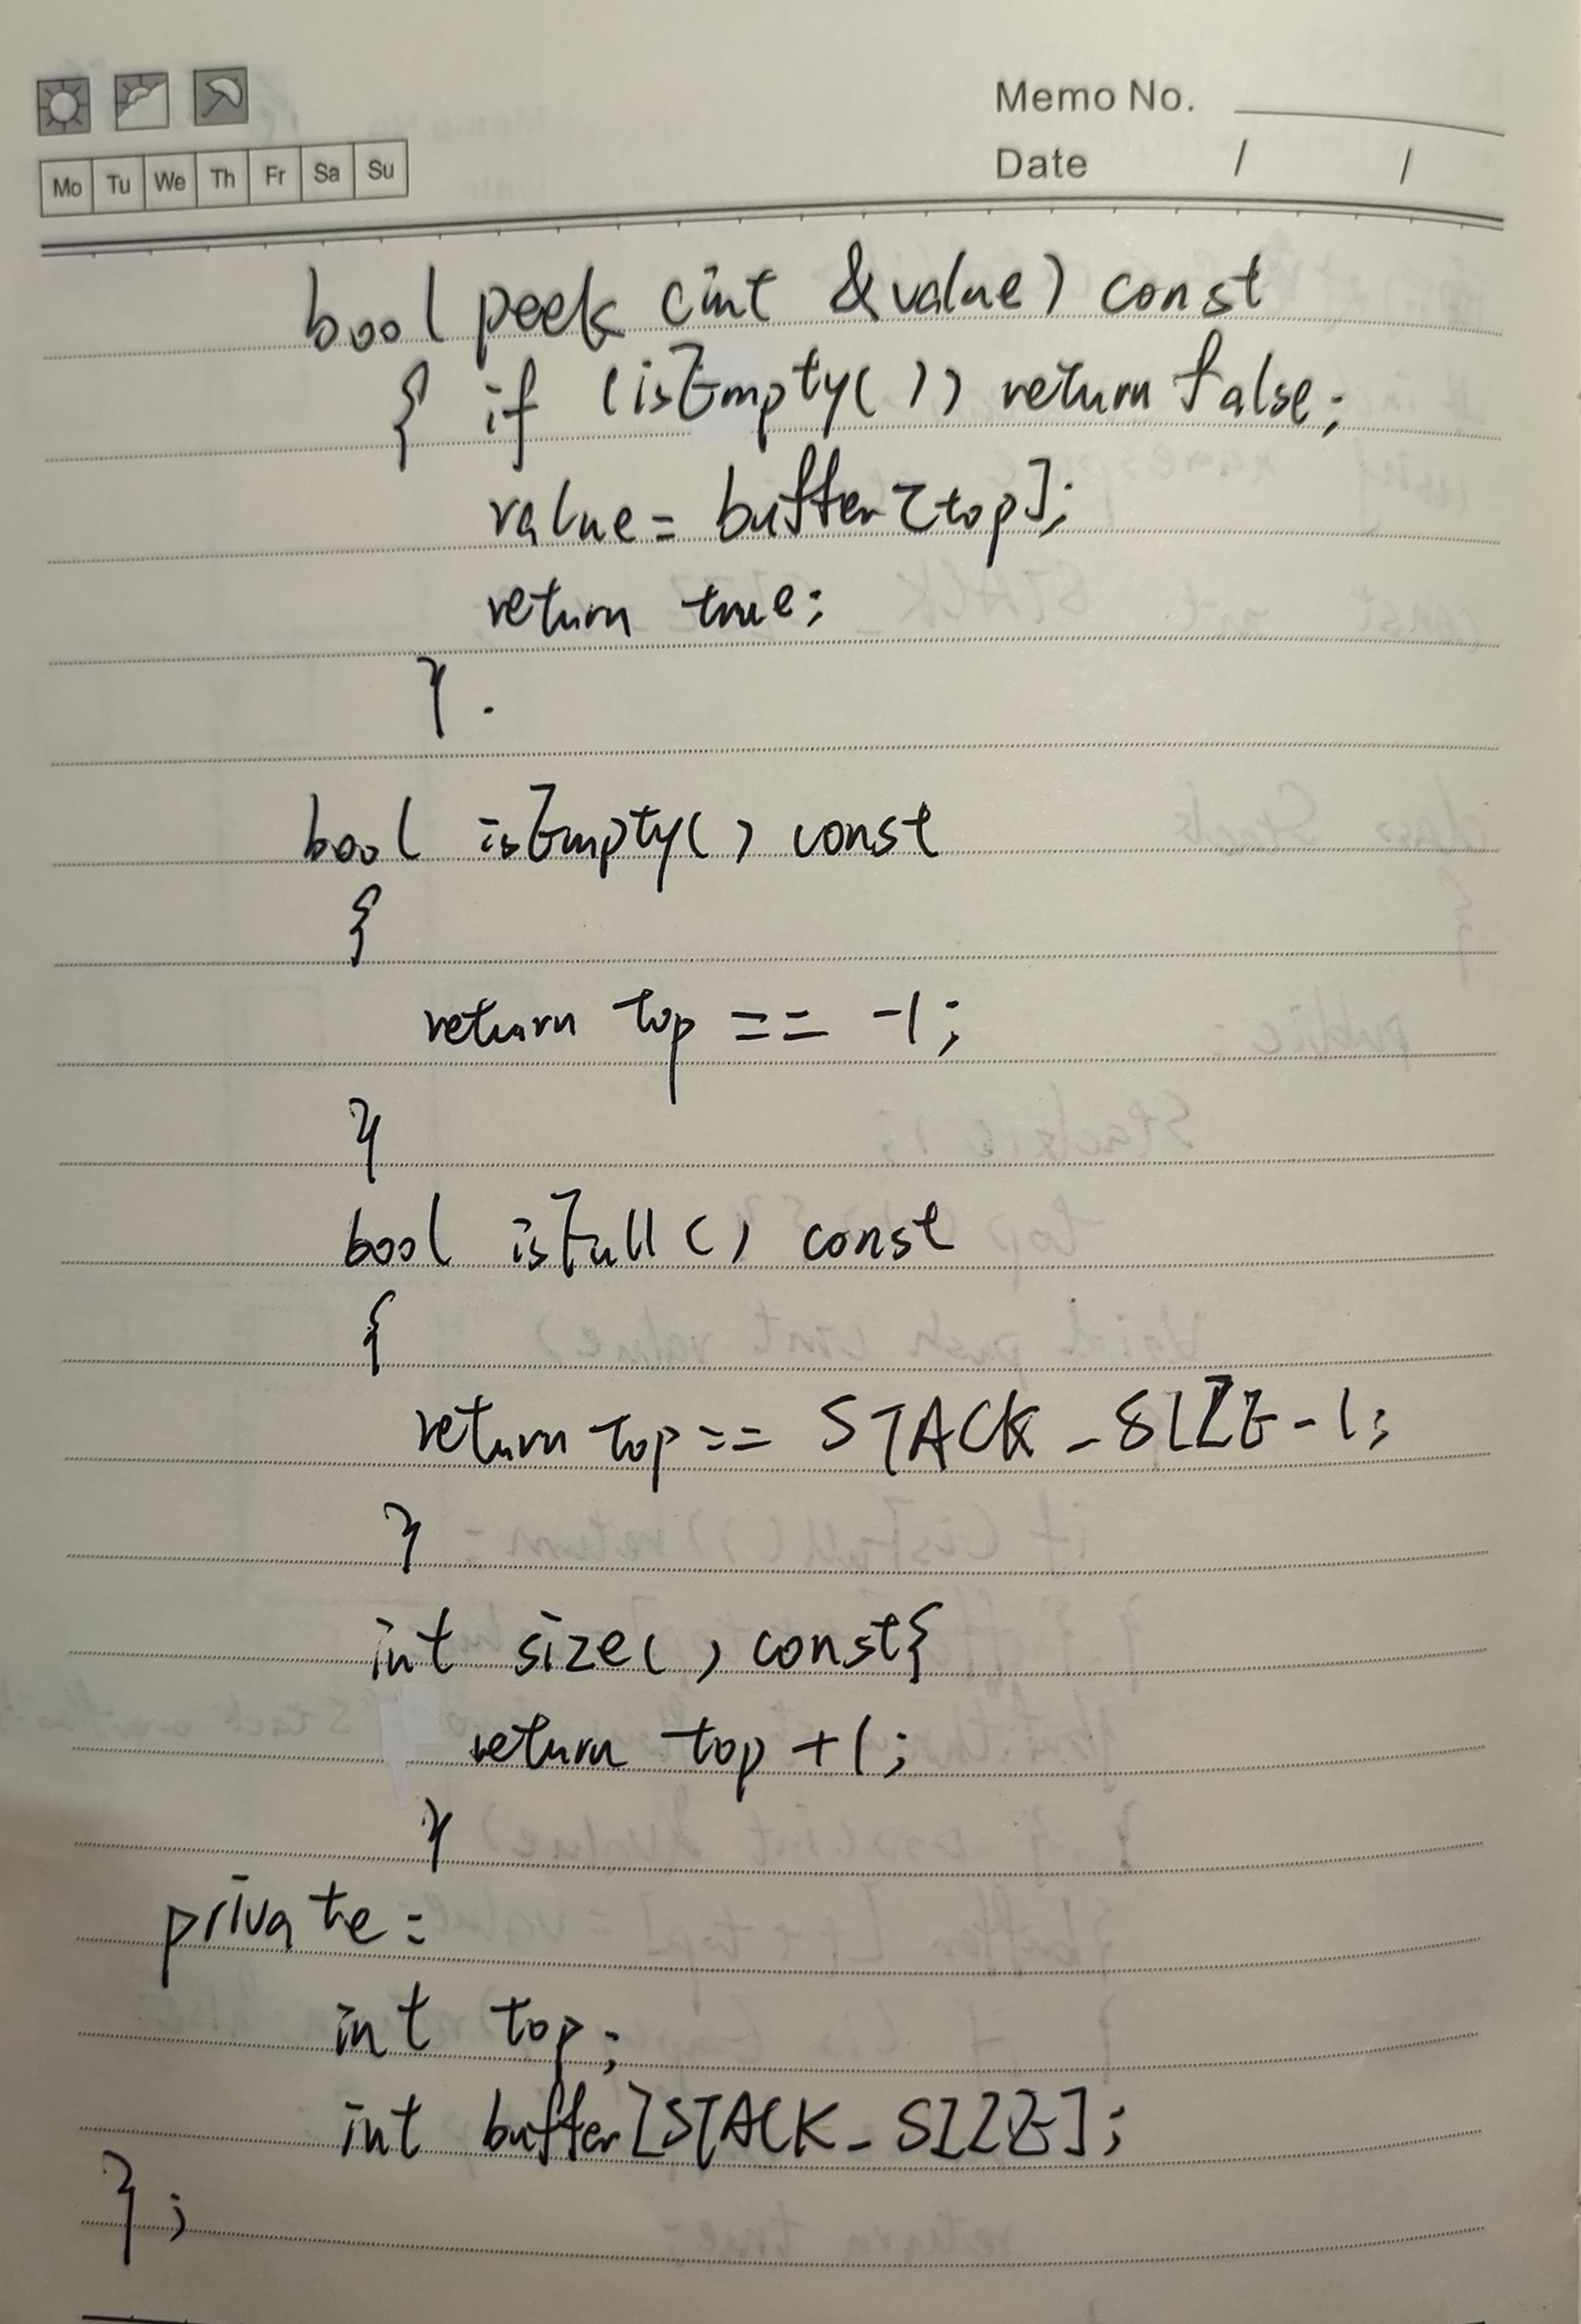 Memo No.
Mo Tu We Th Fr Sa Su
Date / /
bool peek (int &value) const
{ if (isEmpty()) return false;
value = buffer[top];
return true;
}.
bool isEmpty() const
{
return top == -1;
}
bool isFull() const
{
return top == STACK_SIZE-1;
}
int size() const{
return top +1;
}
private:
int top;
int buffer[STACK_SIZE];
};